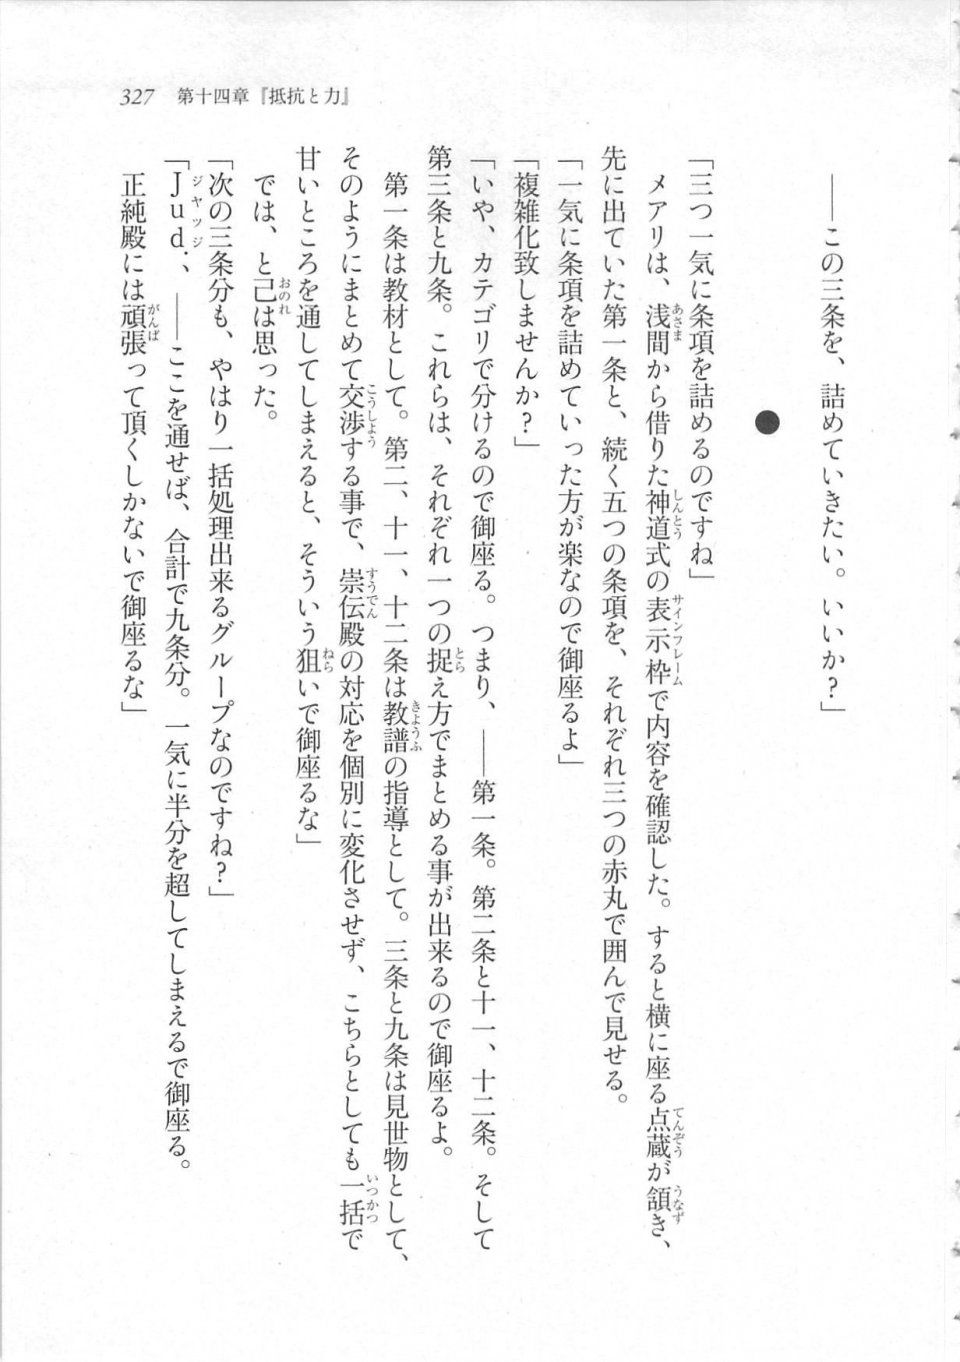 327 第十四章『抵抗と力』
――この三条を、詰めていきたい。いいか？」
●
「三つ一気に条項を詰めるのですね」
メアリは、浅間から借りた神道式の表示枠で内容を確認した。すると横に座る点蔵が頷き、
先に出ていた第一条と、続く五つの条項を、それぞれ三つの赤丸で囲んで見せる。
「一気に条項を詰めていった方が楽なので御座るよ」
「複雑化致しませんか？」
「いや、カテゴリで分けるので御座る。つまり、――第一条。第二条と十一、十二条。そして
第三条と九条。これらは、それぞれ一つの捉え方でまとめる事が出来るので御座るよ。
第一条は教材として。第二、十一、十二条は教譜の指導として。三条と九条は見世物として、
そのようにまとめて交渉する事で、崇伝殿の対応を個別に変化させず、こちらとしても一括で
甘いところを通してしまえると、そういう狙いで御座るな」
では、と己は思った。
「次の三条分も、やはり一括処理出来るグループなのですね？」
「Jud.、――ここを通せば、合計で九条分。一気に半分を超してしまえるで御座る。
正純殿には頑張って頂くしかないで御座るな」